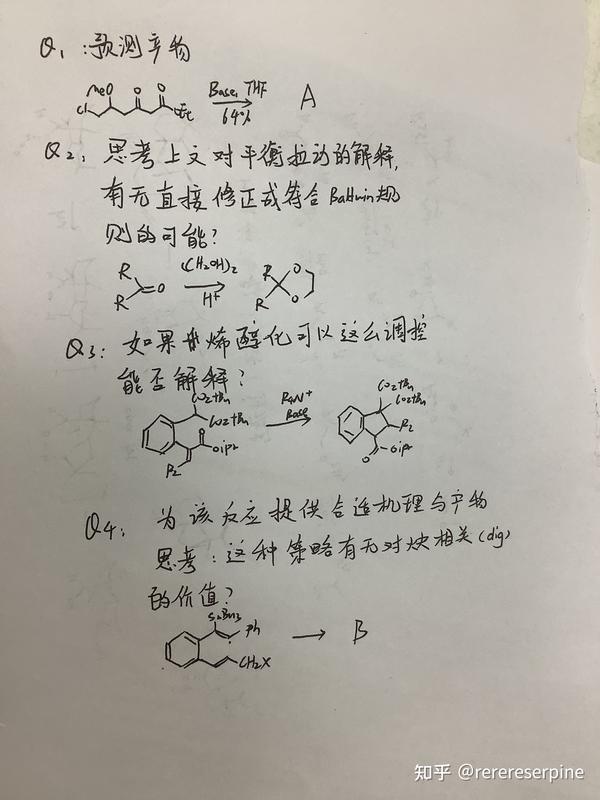 Q1:预测产物
MeO O O
Cl OEt Base, THF 64% A
Q2:思考上文对平衡拉动的解释,
有无直接修正或符合Baldwin规
则的可能?
R R O (CH2OH)2 H+ R R O O
Q3:如果烯醇化可以这么调控
能否解释?
CO2tBu CO2tBu O OiPr R2 R4N+ Base CO2tBu CO2tBu R2 O OiPr
Q4:为该反应提供合适机理与产物
思考:这种策略有无对炔相关(dig)
的价值?
SnBu3 Ph CH2X B
知乎 @rerereserpine